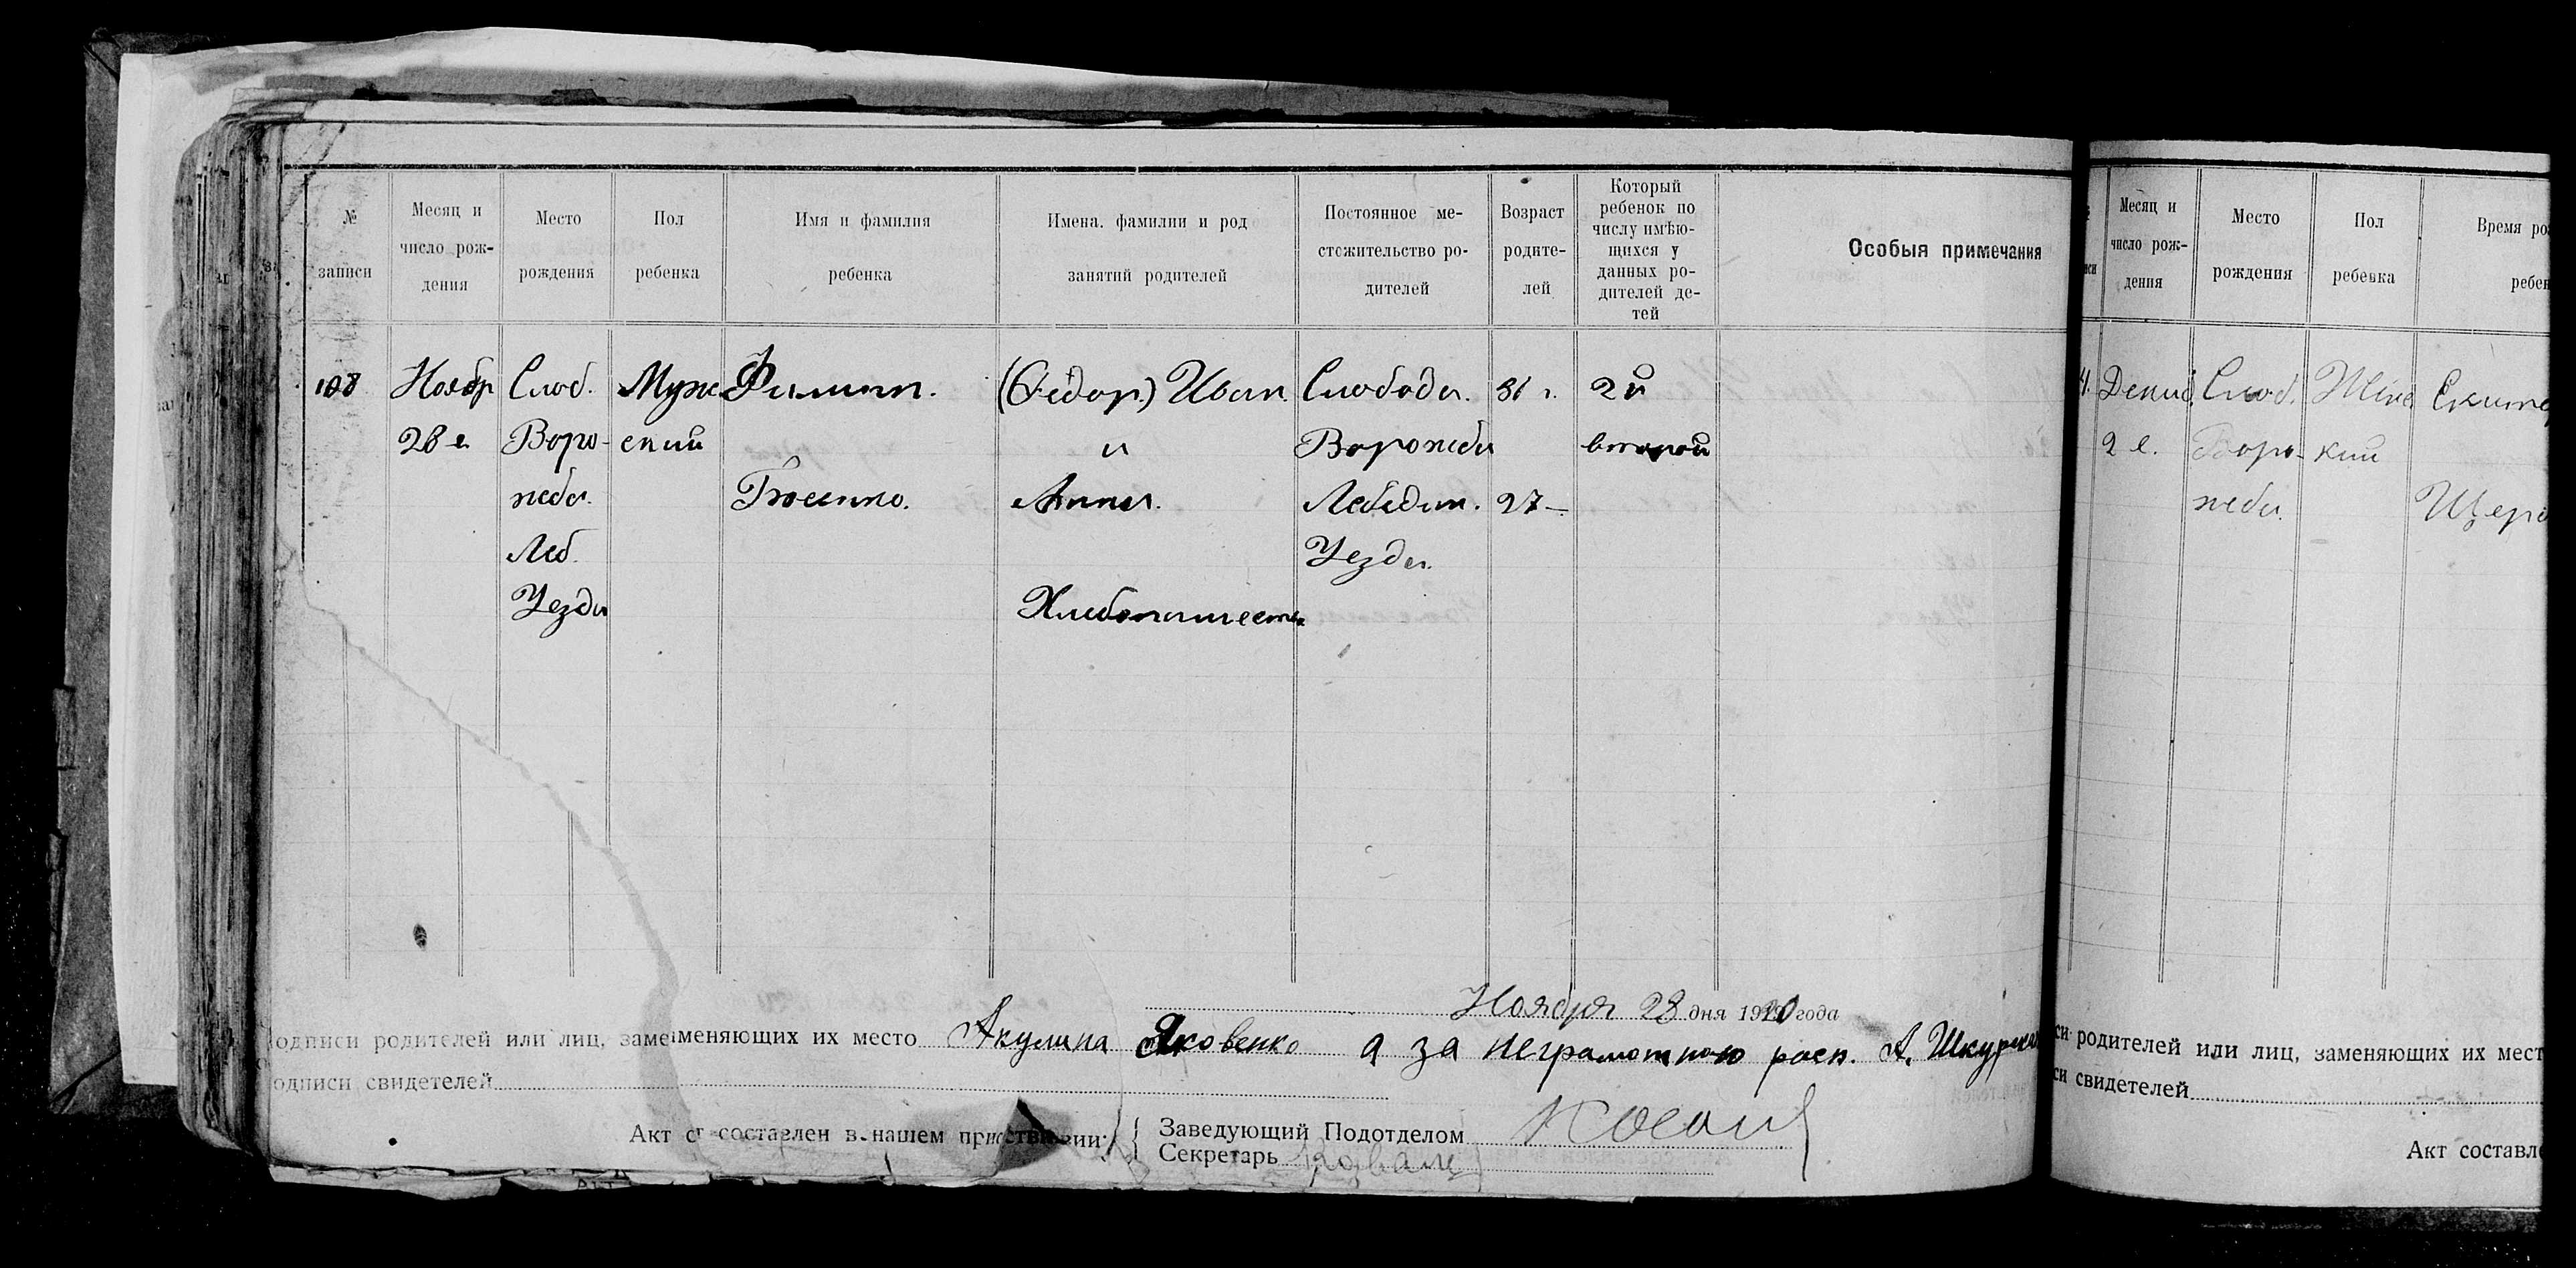 № записи
Месяц и число рождения
Место рождения
Пол ребенка
Имя и фамилия ребенка
Имена. фамилии и род занятий родителей
Постоянное местожительство родителей
Возраст родителей
Который ребенок по числу имѣющихся у данных родителей детей
Особыя примечания
108 Ноябр Слоб. Муже Филипп. (Федор.) Иван Слобода. 31 г. 2й
28 е Воро- ский и Ворожба второй
жба. Анна. Лебедин. 27 –
Леб. Уезда.
Уезда Хлебопашество
Ноября 28 дня 1920 года
одписи родителей или лиц, заменяющих их место Акулина Яковенко а за неграмотною расп. А.
одписи свидетелей
Акт составлен в нашем присутствии:
Заведующий Подотделом
Секретарь
Месяц и число рождения
Место рождения
Пол ребенка
Время ро
ребен
Слоб.
2 е. Воро- кий
жба.
си родителей или лиц, заменяющих их мест
си свидетелей
Акт составле